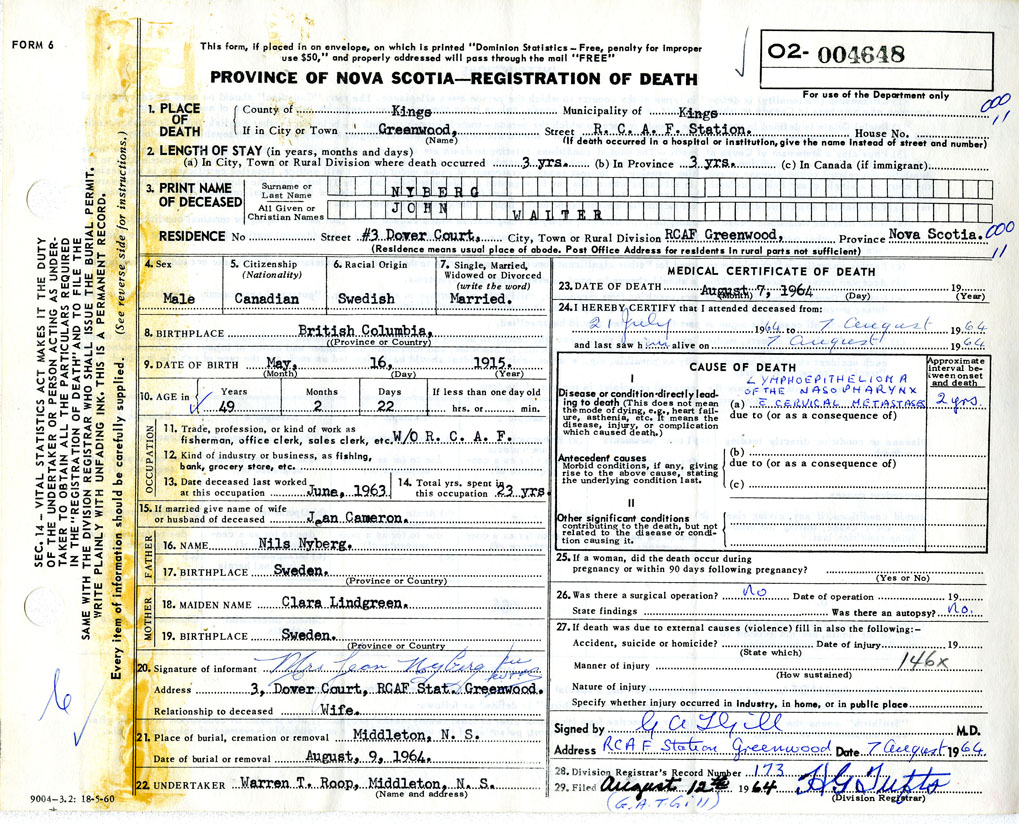 FORM 6
This form, if placed in an envelope, on which is printed "Dominion Statistics – Free, penalty for improper
use $50," and properly addressed will pass through the mail "FREE"
PROVINCE OF NOVA SCOTIA—REGISTRATION OF DEATH
O2- 004648
For use of the Department only
SEC. 14 – VITAL STATISTICS ACT MAKES IT THE DUTY
OF THE UNDERTAKER OR PERSON ACTING AS UNDER-
TAKER TO OBTAIN ALL THE PARTICULARS REQUIRED
IN THE "REGISTRATION OF DEATH" AND TO FILE THE
SAME WITH THE DIVISION REGISTRAR WHO SHALL ISSUE THE BURIAL PERMIT.
WRITE PLAINLY WITH UNFADING INK. THIS IS A PERMANENT RECORD.
Every item of information should be carefully supplied. (See reverse side for instructions.)
1. PLACE OF DEATH
County of Kings Municipality of Kings
000
11
If in City or Town Greenwood, Street R. C. A. F. Station. House No.
(Name) (If death occurred in a hospital or institution, give the name instead of street and number)
2. LENGTH OF STAY (in years, months and days)
(a) In City, Town or Rural Division where death occurred 3 yrs. (b) In Province 3 yrs. (c) In Canada (if immigrant)
3. PRINT NAME OF DECEASED
Surname or Last Name NYBERG
All Given or Christian Names JOHN WALTER
RESIDENCE No Street #3 Dover Court, City, Town or Rural Division RCAF Greenwood, Province Nova Scotia.
000
11
(Residence means usual place of abode. Post Office Address for residents in rural parts not sufficient)
4. Sex
Male
5. Citizenship
(Nationality)
Canadian
6. Racial Origin
Swedish
7. Single, Married,
Widowed or Divorced
(write the word)
Married.
8. BIRTHPLACE British Columbia,
(Province or Country)
9. DATE OF BIRTH May, 16, 1915.
(Month) (Day) (Year)
10. AGE in
Years Months Days If less than one day old
49 2 22 hrs. or min.
OCCUPATION
11. Trade, profession, or kind of work as
fisherman, office clerk, sales clerk, etc. W/O R. C. A. F.
12. Kind of industry or business, as fishing,
bank, grocery store, etc.
13. Date deceased last worked
at this occupation June, 1963
14. Total yrs. spent in
this occupation 23 yrs.
15. If married give name of wife
or husband of deceased Jean Cameron.
FATHER
16. NAME Nils Nyberg.
17. BIRTHPLACE Sweden.
(Province or Country)
MOTHER
18. MAIDEN NAME Clara Lindgreen.
19. BIRTHPLACE Sweden.
(Province or Country
20. Signature of informant Mrs Jean Nyberg
Address 3, Dover Court, RCAF Stat. Greenwood.
Relationship to deceased Wife.
21. Place of burial, cremation or removal Middleton, N. S.
Date of burial or removal August, 9, 1964.
22. UNDERTAKER Warren T. Roop, Middleton, N. S.
(Name and address)
9004–3.2: 18-5-60
MEDICAL CERTIFICATE OF DEATH
23. DATE OF DEATH August 7, 1964 19
(Month) (Day) (Year)
24. I HEREBY CERTIFY that I attended deceased from:
21 July 1964 to 7 August 1964
and last saw him alive on 7 August 1964
CAUSE OF DEATH
Approximate
interval be-
tween onset
and death
I
Disease or condition directly lead-
ing to death (This does not mean
the mode of dying, e.g., heart fail-
ure, asthenia, etc. It means the
disease, injury, or complication
which caused death.)
LYMPHOEPITHELIOMA
OF THE NASOPHARYNX
(a) c̄ CERVICAL METASTASES 2 yrs.
due to (or as a consequence of)
Antecedent causes
Morbid conditions, if any, giving
rise to the above cause, stating
the underlying condition last.
(b)
due to (or as a consequence of)
(c)
II
Other significant conditions
contributing to the death, but not
related to the disease or condi-
tion causing it.
25. If a woman, did the death occur during
pregnancy or within 90 days following pregnancy?
(Yes or No)
26. Was there a surgical operation? No Date of operation 19
State findings Was there an autopsy? No.
27. If death was due to external causes (violence) fill in also the following:–
Accident, suicide or homicide? Date of injury 19
(State which)
146x
Manner of injury
(How sustained)
Nature of injury
Specify whether injury occurred in industry, in home, or in public place
Signed by G A T Gill M.D.
Address RCAF Station Greenwood Date 7 August 1964.
28. Division Registrar's Record Number 173
29. Filed August 12th 1964 H G Tufts
(G.A.T Gill) (Division Registrar)